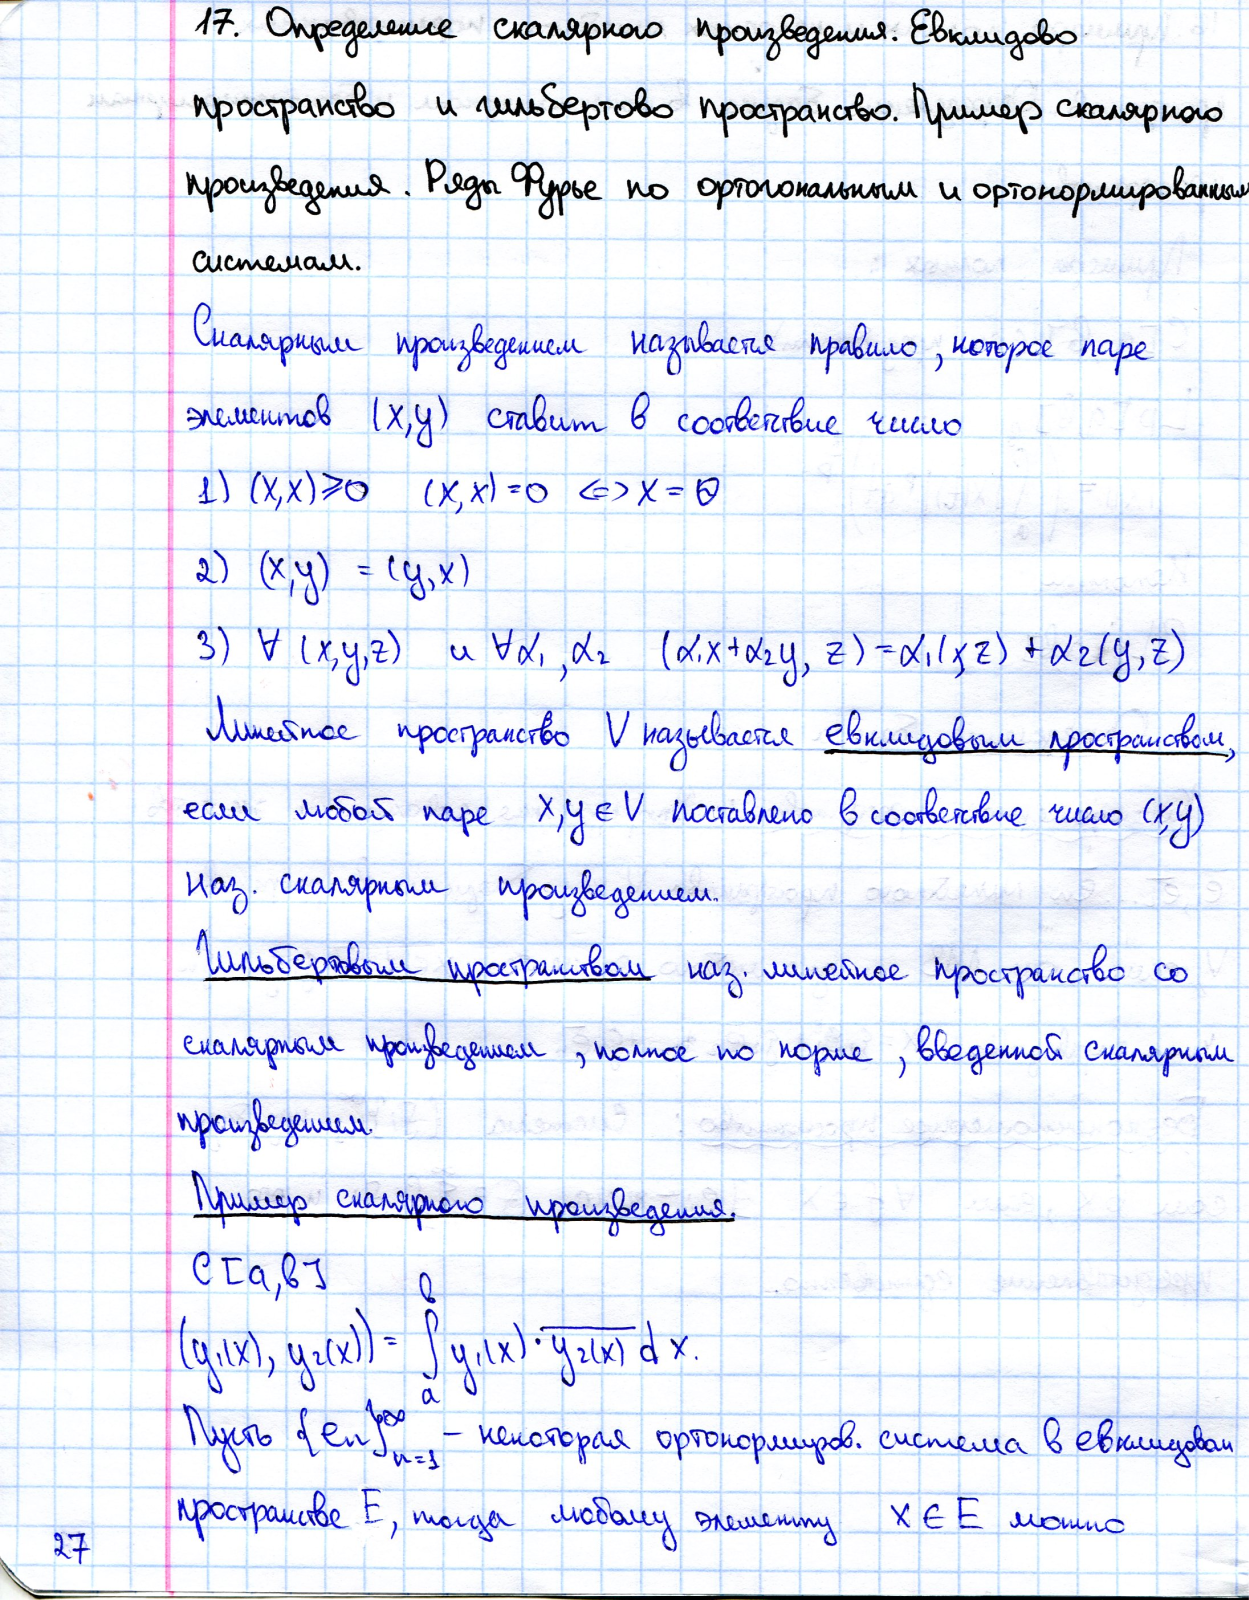 17. Определение скалярного произведения. Евклидово
пространство и гильбертово пространство. Пример скалярного
произведения. Ряды Фурье по ортогональным и ортонормированным
системам.
Скалярным произведением называется правило, которое паре
элементов (x,y) ставит в соответствие число
1) (x,x)≥0 (x,x)=0 <=> x = θ
2) (x,y) = (y,x)
3) ∀ (x,y,z) и ∀α₁,α₂ (α₁x+α₂y, z)=α₁(x,z) + α₂(y,z)
Линейное пространство V называется евклидовым пространством,
если любой паре x,y ∈ V поставлено в соответствие число (x,y)
наз. скалярным произведением.
Гильбертовым пространством наз. линейное пространство со
скалярным произведением, полное по норме, введенной скалярным
произведением.
Пример скалярного произведения.
C[a,b]
(y₁(x), y₂(x)) = ∫ₐᵇ y₁(x)·y̅₂̅(̅x̅)̅ dx.
Пусть {en}∞n=1 – некоторая ортонормиров. система в евклидовом
пространстве E, тогда любому элементу x ∈ E можно
27